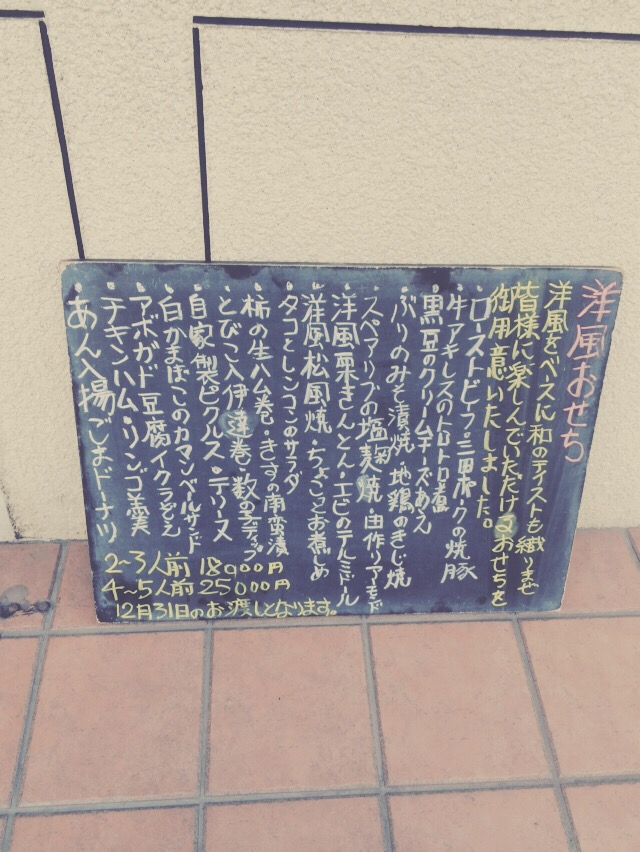 洋風おせち
洋風をベースに和のテイストも織りませ
皆様に楽しんでいただけるおせちを
御用意いたしました。
・ローストビーフ・三田ポークの焼豚
・牛アキレスのトロトロ煮
・黒豆のクリームチーズあえ
・ぶりのみそ漬焼・地鶏のきじ焼
・スペアリブの塩麹焼・田作りアーモンド
・洋風栗きんとん・エビのテルミドール
・洋風松風焼・ちょこっとお煮しめ
・タコとレンコンのサラダ
・柿の生ハム巻・きすの南蛮漬
・とびこ入伊達巻・数の子ディップ
・自家製ピクルス・テリーヌ
・白かまぼこのカマンベールサンド
・アボガド豆腐イクラぞえ
・チキンハム・リンゴ羹
・あん入揚ごまドーナツ
2~3人前 18000円
4~5人前 25000円
12月31日のお渡しとなります。